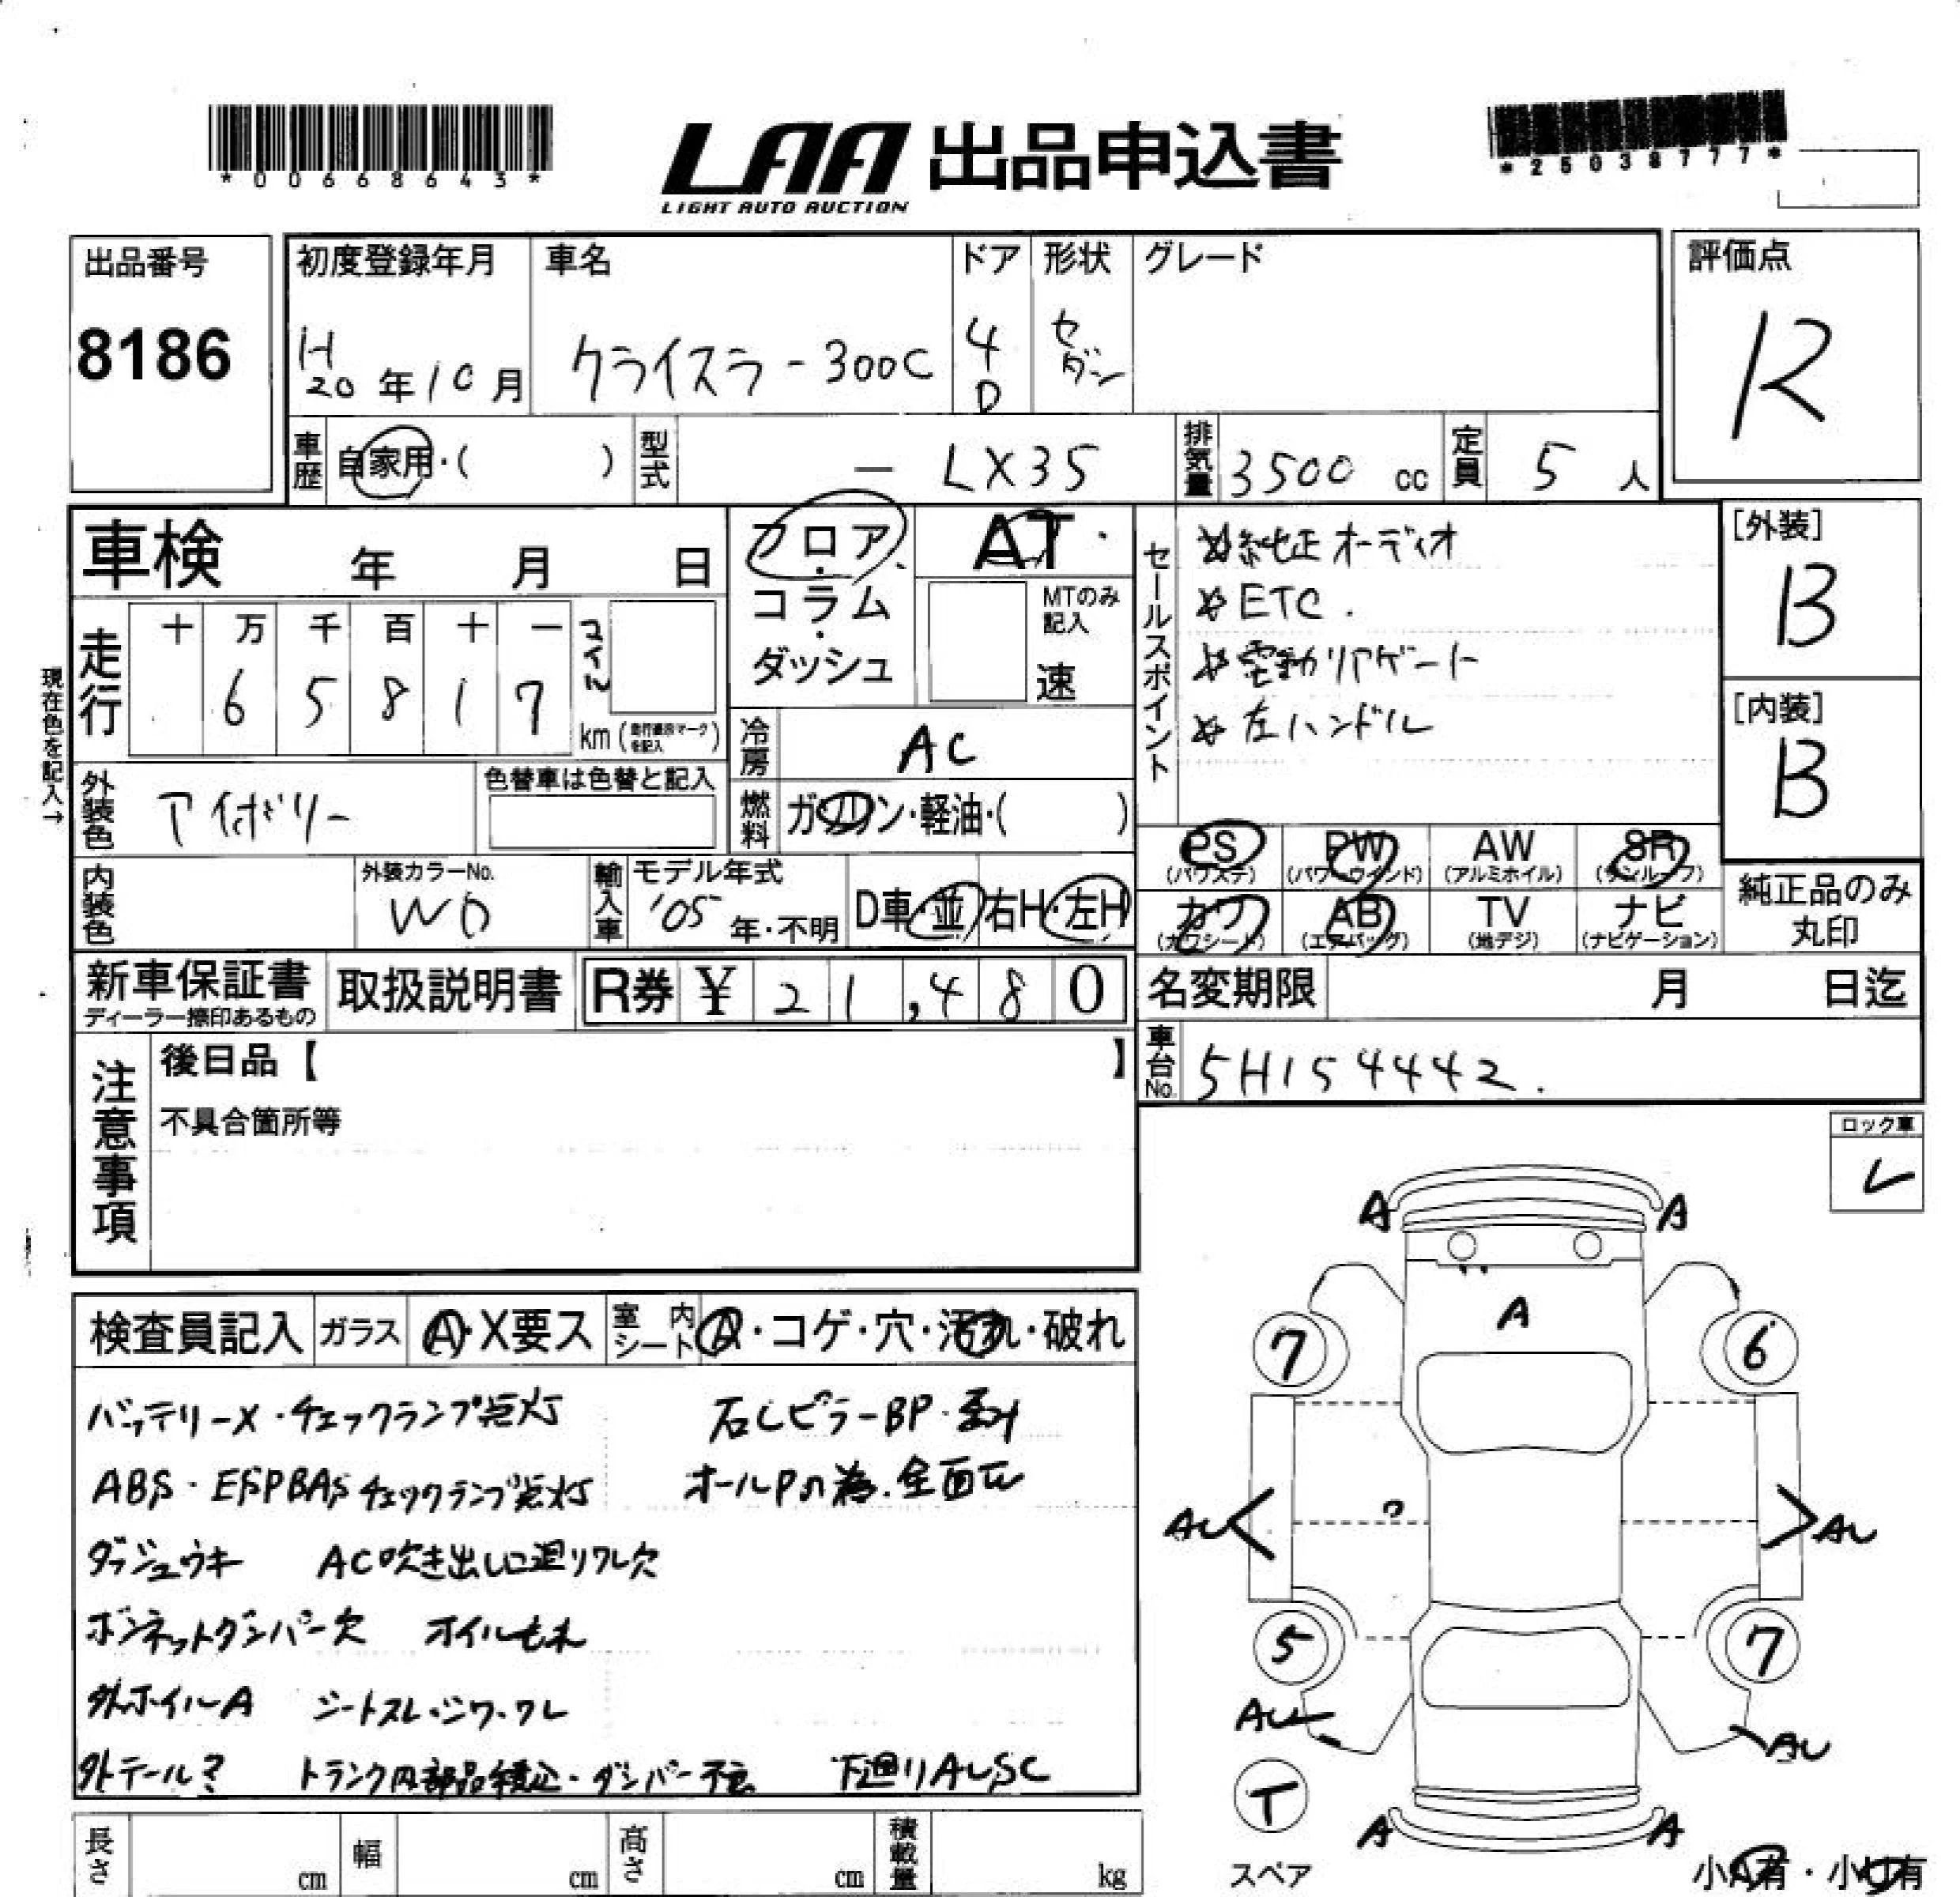 *00668643*
LAA 出品申込書
LIGHT AUTO AUCTION
*25038777*
出品番号
8186
初度登録年月
H20年10月
車名
クライスラー300C
ドア
4D
形状
セダン
グレード
評価点
R
車歴 自家用・( )
型式 - LX35
排気量 3500 cc
定員 5 人
車検 年 月 日
フロア・コラム・ダッシュ
AT
MTのみ記入
速
セールスポイント
☆純正オーディオ
☆ETC.
☆電動リアゲート
☆左ハンドル
[外装]
B
[内装]
B
現在色を記入→
走行
十 万 千 百 十 一
6 5 8 1 7
マイル
km (走行表示マークを記入)
冷房 AC
外装色 アイボリー
色替車は色替と記入
燃料 ガソリン・軽油・( )
PS (パワステ)
PW (パワーウィンド)
AW (アルミホイル)
SR (サンルーフ)
カワ (カワシート)
AB (エアバッグ)
TV (地デジ)
ナビ (ナビゲーション)
純正品のみ丸印
内装色
外装カラーNo.
輸入車
モデル年式
'05年・不明
D車・並
右H・左H
新車保証書
ディーラー捺印あるもの
取扱説明書
R券 ¥ 21,480
名変期限 月 日迄
車台No. 5H154442.
注意事項
後日品【 】
不具合箇所等
ロック車
レ
検査員記入
ガラス A・X要ス
室内シート A・コゲ・穴・汚れ・破れ
バッテリーX・チェックランプ点灯
右Cピラー BP・歪み
ABS・ESPBASチェックランプ点灯
オールPの為、全面W
ダッシュウキ AC吹き出し口廻りワレ欠
ボンネットダンパー欠 オイルもれ
外ホイルA シートスレ・シワ・ワレ
トランク内部品積込・ダンパー不良 下廻りAUSC
A A
A
7 6
AU AU
5 7
AU AU
T
スペア
A A
小A有・小U有
長さ cm
幅 cm
高さ cm
積載量 kg